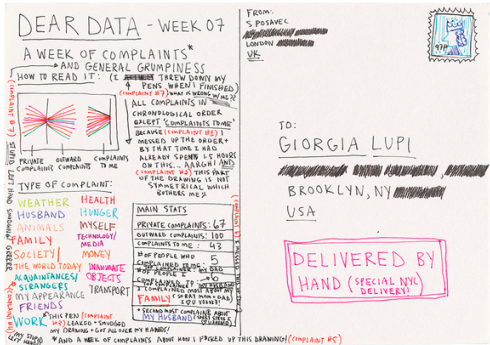 DEAR DATA - WEEK 07
A WEEK OF COMPLAINTS*
*AND GENERAL GRUMPINESS
HOW TO READ IT:
(I THREW DOWN MY
4 PENS WHEN I FINISHED)
(COMPLAINT #7) WHAT IS WRONG W/ME??
ALL COMPLAINTS IN
CHRONOLOGICAL ORDER
EXCEPT 'COMPLAINTS TO ME'
BECAUSE (COMPLAINT #1) I
MESSED UP THE ORDER +
BY THAT TIME I HAD
ALREADY SPENT 2.5 HOURS
ON THIS... AARGH! AND
(COMPLAINT #2) THIS PART
OF THE DRAWING IS NOT
SYMMETRICAL WHICH
BOTHERS ME
PRIVATE COMPLAINTS
OUTWARD COMPLAINTS
COMPLAINTS TO ME
TYPE OF COMPLAINT:
WEATHER
HUSBAND
ANIMALS
FAMILY
SOCIETY/
THE WORLD TODAY
ACQUAINTANCES/
STRANGERS
MY APPEARANCE
FRIENDS
WORK
HEALTH
HUNGER
MYSELF
TECHNOLOGY/
MEDIA
MONEY
INANIMATE
OBJECTS
TRANSPORT
*THIS PEN (COMPLAINT
#3) LEAKED + SMUDGED
MY DRAWING + GOT ALL OVER MY HANDS!
MAIN STATS
PRIVATE COMPLAINTS: 67
OUTWARD COMPLAINTS: 100
COMPLAINTS TO ME: 43
# OF PEOPLE WHO
COMPLAINED TO ME: 5
# OF PEOPLE I
COMPLAINED TO: 6
I COMPLAINED MOST ABOUT MY
FAMILY (SORRY MOM + DAD,
I LOVE YOU!)
+ SECOND MOST COMPLAINED ABOUT
MY HUSBAND
*AND A WEEK OF COMPLAINTS ABOUT HOW I FUCKED UP THIS DRAWING! (COMPLAINT #5)
FROM:
S POSAVEC
LONDON
UK
97P
TO:
GIORGIA LUPI
BROOKLYN, NY
USA
DELIVERED BY
HAND (SPECIAL NYC
DELIVERY!)